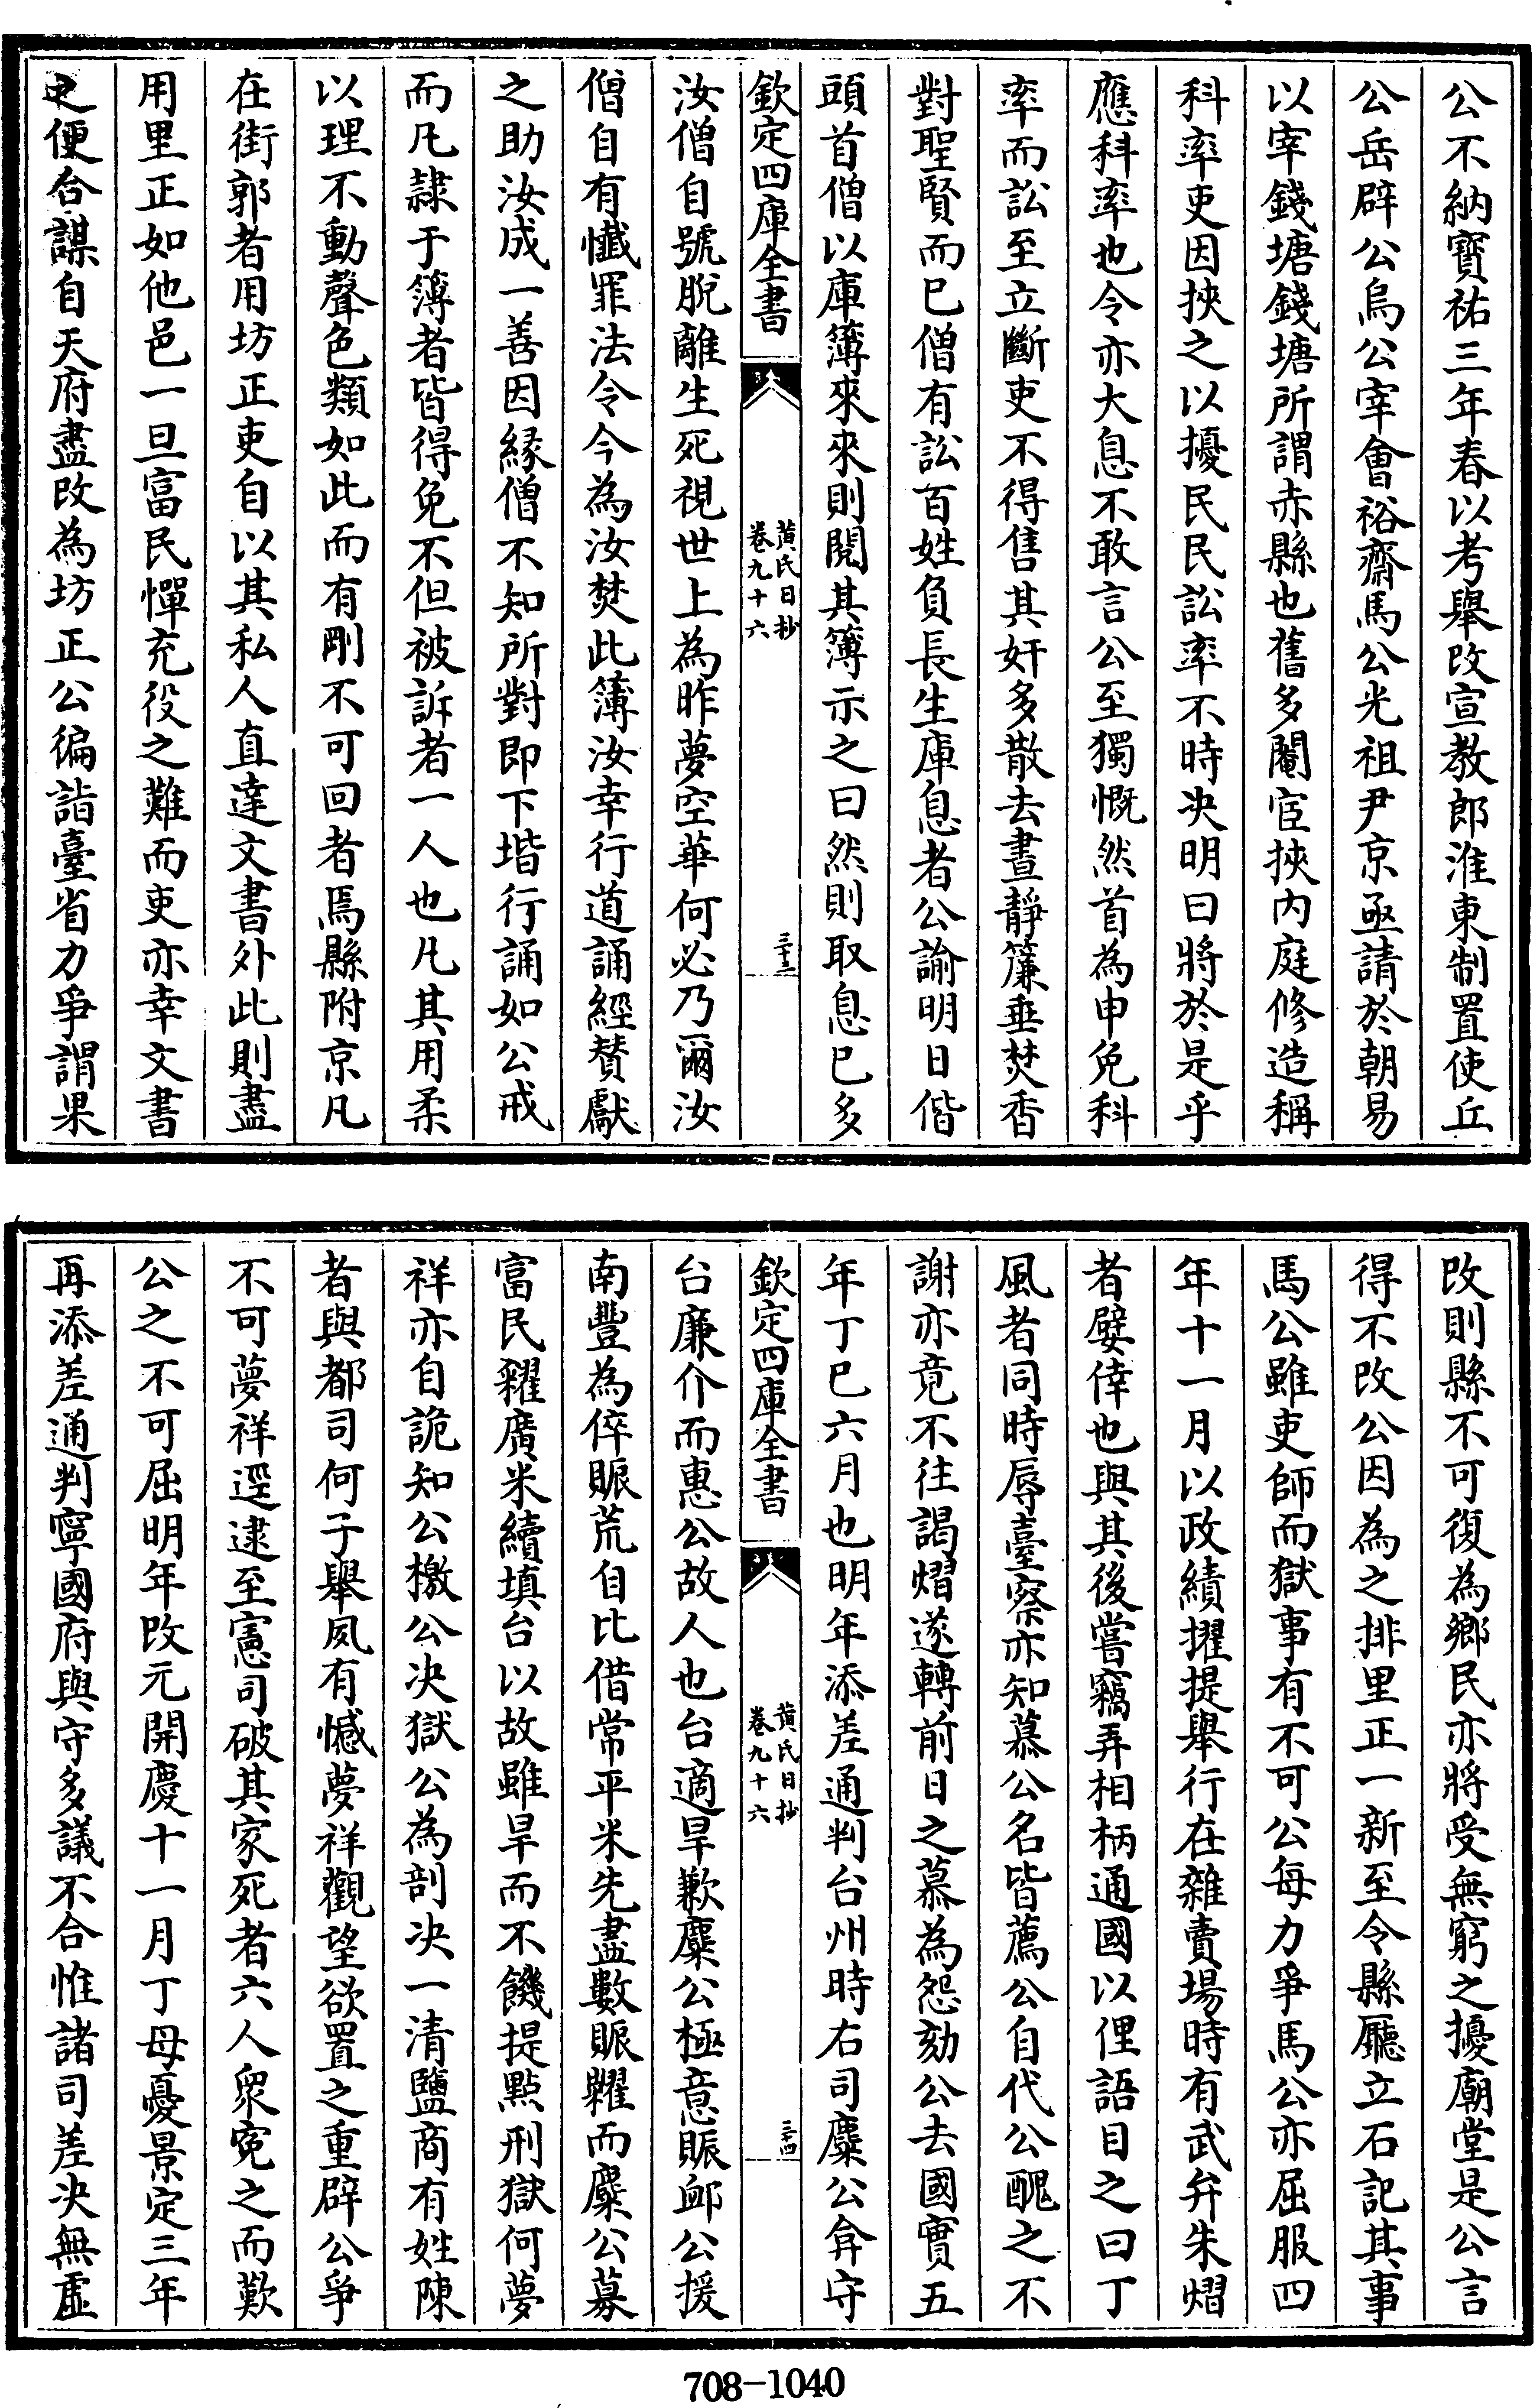 公不納寳祐三年春以考舉改宣教郎淮東制置使丘
公岳辟公烏公宰會裕齋馬公光祖尹京亟請於朝易
以宰錢塘錢塘所謂赤縣也舊多閹宦挾内庭修造稱
科率吏因挾之以擾民民訟率不時决明曰將於是乎
應科率也令亦大息不敢言公至獨慨然首為申免科
率而訟至立斷吏不得售其奸多散去晝靜簾垂焚香
對聖賢而已僧有訟百姓負長生庫息者公諭明日偕
頭首僧以庫簿來來則閱其簿示之曰然則取息已多
欽定四庫全書
黄氏日抄
卷九十六
三十三
汝僧自號脱離生死視世上為昨夢空華何必乃爾汝
僧自有懴罪法令今為汝焚此簿汝幸行道誦經賛獻
之助汝成一善因縁僧不知所對即下堦行誦如公戒
而凡隷于簿者皆得免不但被訴者一人也凡其用柔
以理不動聲色類如此而有剛不可回者焉縣附京凡
在街郭者用坊正吏自以其私人直達文書外此則盡
用里正如他邑一旦富民憚充役之難而吏亦幸文書
之便合謀自天府盡改為坊正公徧詣臺省力爭謂果
改則縣不可復為鄉民亦將受無窮之擾廟堂是公言
得不改公因為之排里正一新至今縣廳立石記其事
馬公雖吏師而獄事有不可公每力爭馬公亦屈服四
年十一月以政績擢提舉行在雜賣場時有武弁朱熠
者嬖倖也與其後嘗竊弄相柄通國以俚語目之曰丁
風者同時辱臺察亦知慕公名皆薦公自代公醜之不
謝亦竟不往謁熠遂轉前日之慕為怨劾公去國實五
年丁巳六月也明年添差通判台州時右司麋公弇守
欽定四庫全書
黄氏日抄
卷九十六
三十四
台廉介而惠公故人也台適旱歉麋公極意賑䘏公援
南豐為倅賑荒自比借常平米先盡數賑糶而麋公募
富民糴廣米續填台以故雖旱而不饑提點刑獄何夢
祥亦自詭知公檄公决獄公為剖决一清鹽商有姓陳
者與都司何子舉夙有憾夢祥觀望欲置之重辟公爭
不可夢祥逕逮至憲司破其家死者六人衆寃之而歎
公之不可屈明年改元開慶十一月丁母憂景定三年
再添差通判寧國府與守多議不合惟諸司差决無虚
708-1040